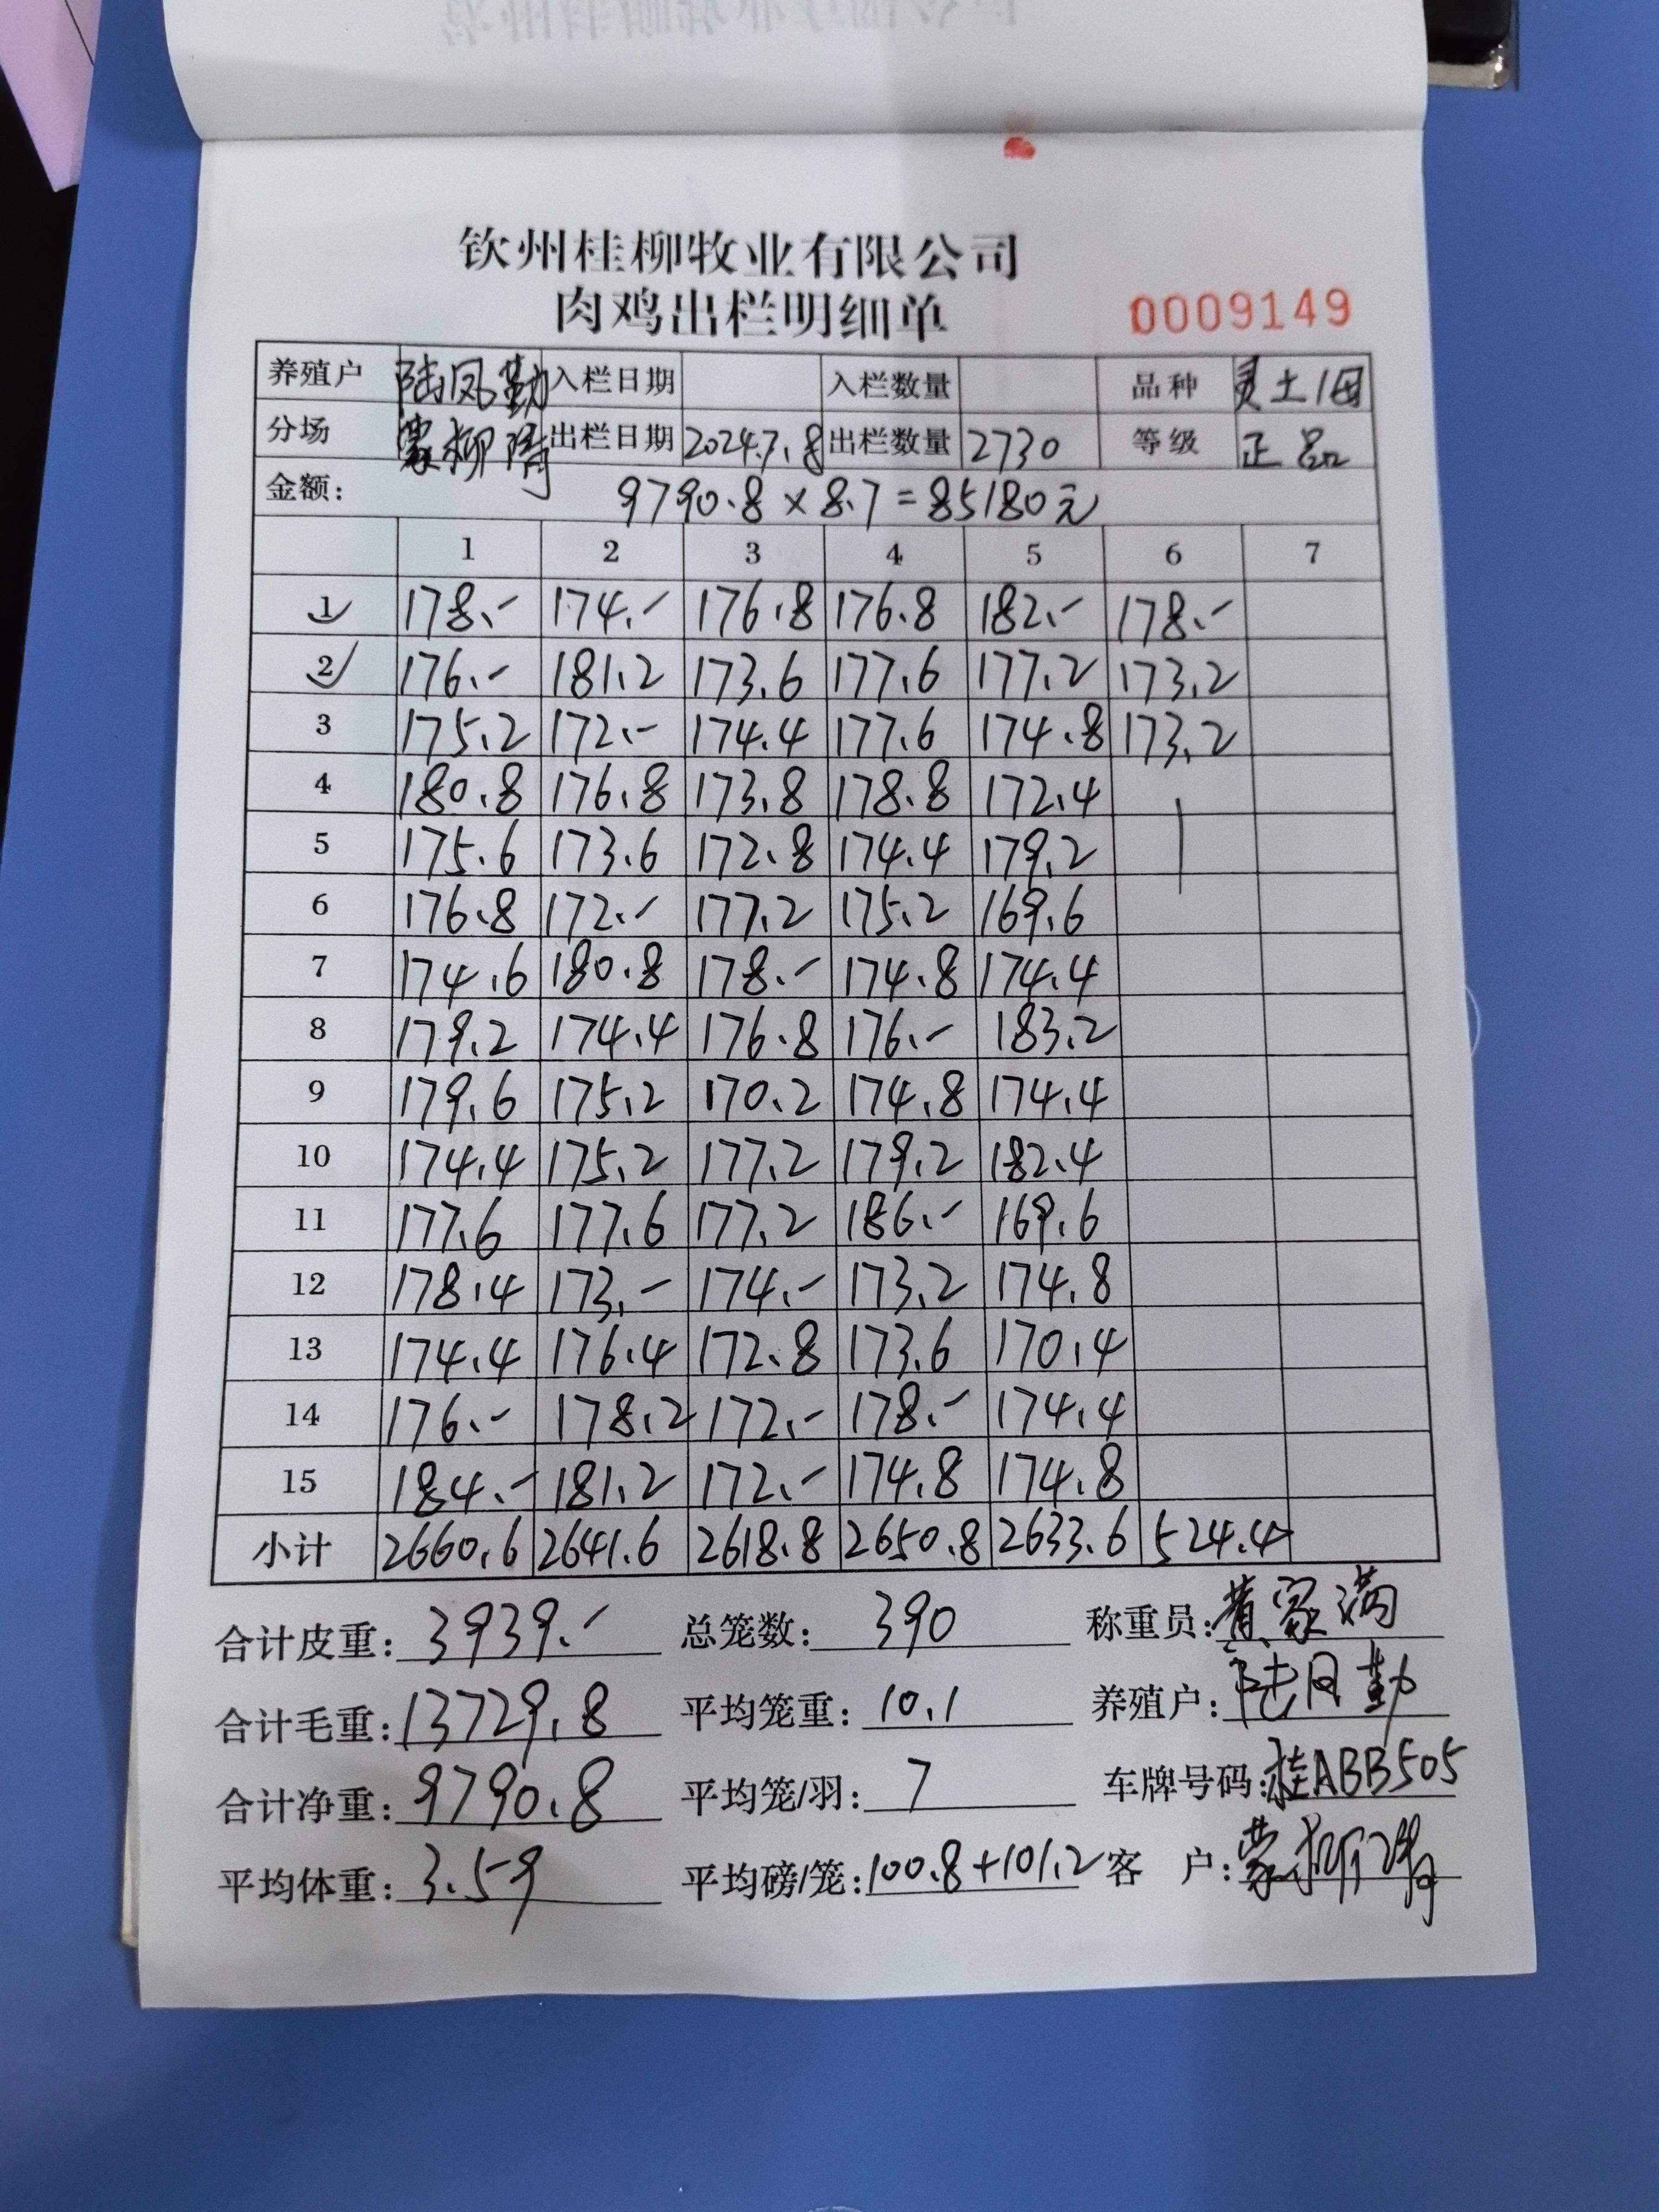 钦州桂柳牧业有限公司
肉鸡出栏明细单 0009149
养殖户 陆凤勤 入栏日期 入栏数量 品种 灵土1母
分场 蒙柳 出栏日期 2024.7.8 出栏数量 2730 等级 正品
金额: 9790.8×8.7=85180元
1 2 3 4 5 6 7
1 178.- 174.- 176.8 176.8 182.- 178.-
2 176.- 181.2 173.6 177.6 177.2 173.2
3 175.2 172.- 174.4 177.6 174.8 173.2
4 180.8 176.8 173.8 178.8 172.4
5 175.6 173.6 172.8 174.4 179.2
6 176.8 172.- 177.2 175.2 169.6
7 174.6 180.8 178.- 174.8 174.4
8 179.2 174.4 176.8 176.- 183.2
9 179.6 175.2 170.2 174.8 174.4
10 174.4 175.2 177.2 179.2 182.4
11 177.6 177.6 177.2 186.- 169.6
12 178.4 173.- 174.- 173.2 174.8
13 174.4 176.4 172.8 173.6 170.4
14 176.- 178.2 172.- 178.- 174.4
15 184.- 181.2 172.- 174.8 174.8
小计 2660.6 2641.6 2618.8 2650.8 2633.6 524.4
合计皮重: 3939.- 总笼数: 390 称重员: 黄家满
合计毛重: 13729.8 平均笼重: 10.1 养殖户: 陆凤勤
合计净重: 9790.8 平均笼/羽: 7 车牌号码: 桂ABB505
平均体重: 3.59 平均磅/笼: 100.8+101.2 客 户: 蒙柳